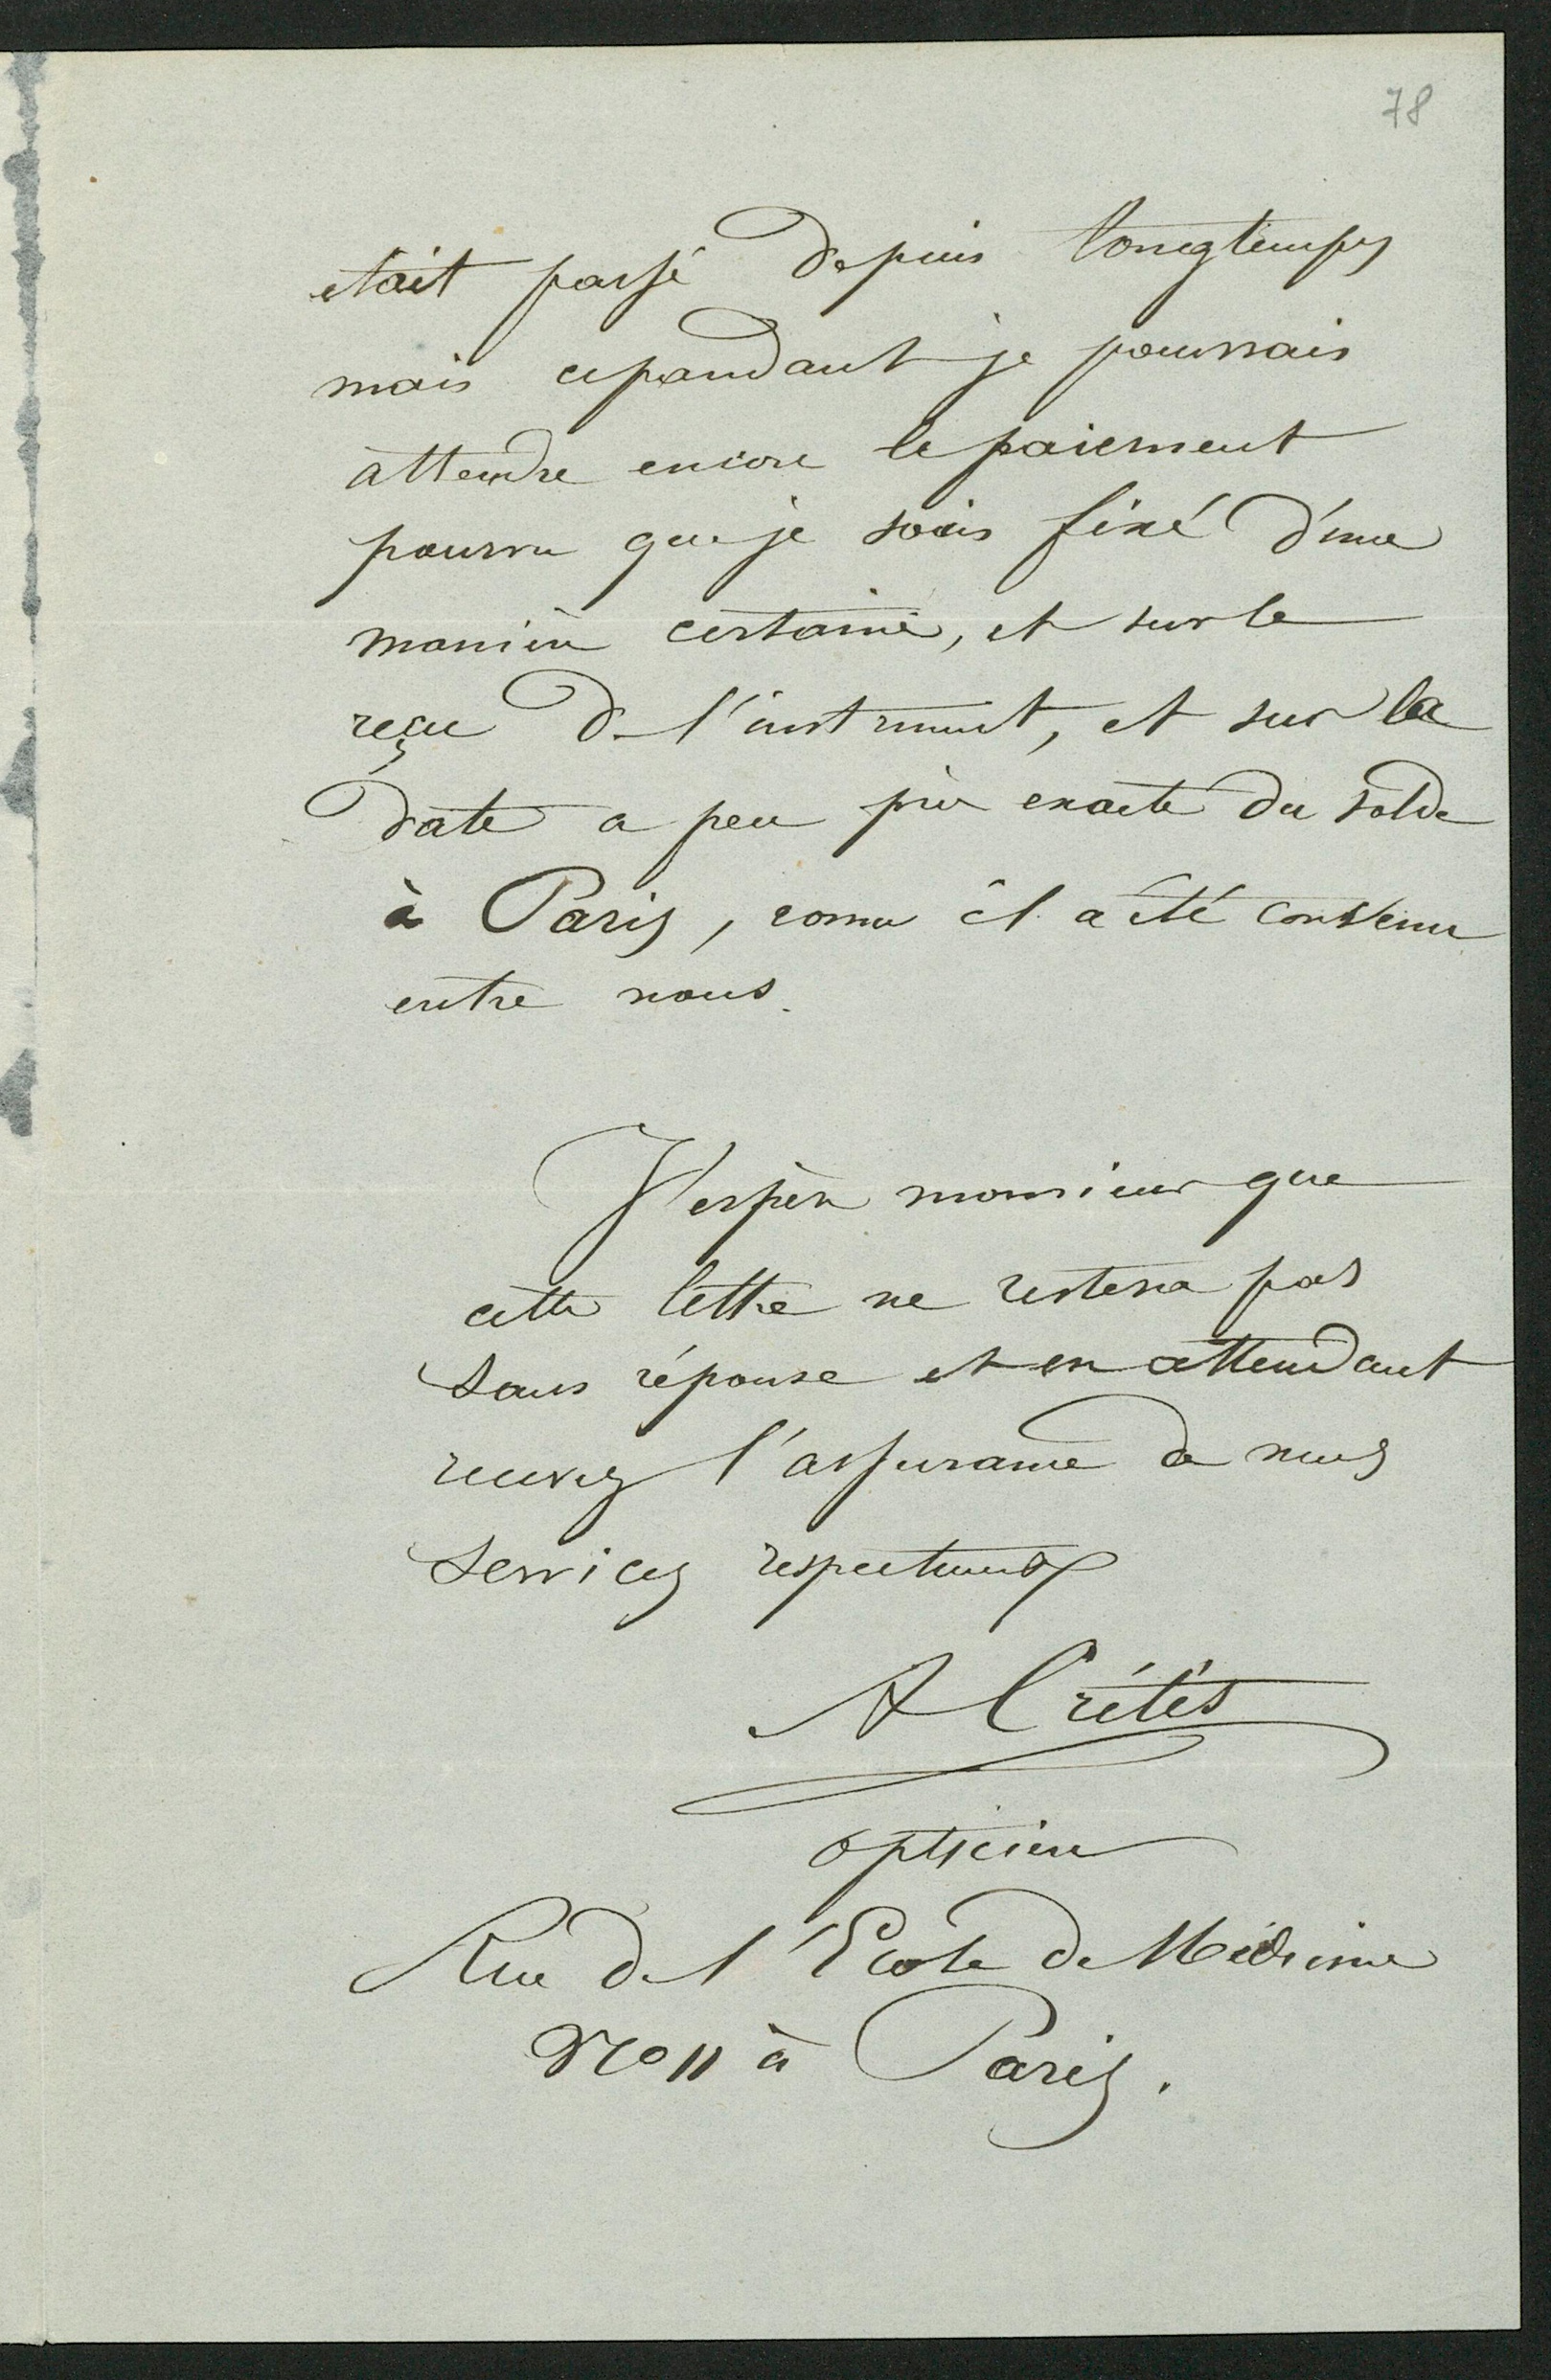 78
etait passé depuis longtemps
mais cepandant je pourrais
attendre encore le paiement
pourvu que je sois fixé d'une
manière certaine, et sur le
reçu de l'instrument, et sur la
date a peu près exacte du solde
à Paris, comme il a été convenu
entre nous.
J'espère monsieur que
cette lettre ne restera pas
sans réponse et en attendant
recevez l'assurance de mes
services respectueux
A Crétès
opticien
Rue de l'Ecole de Médecine
No 11 à Paris.